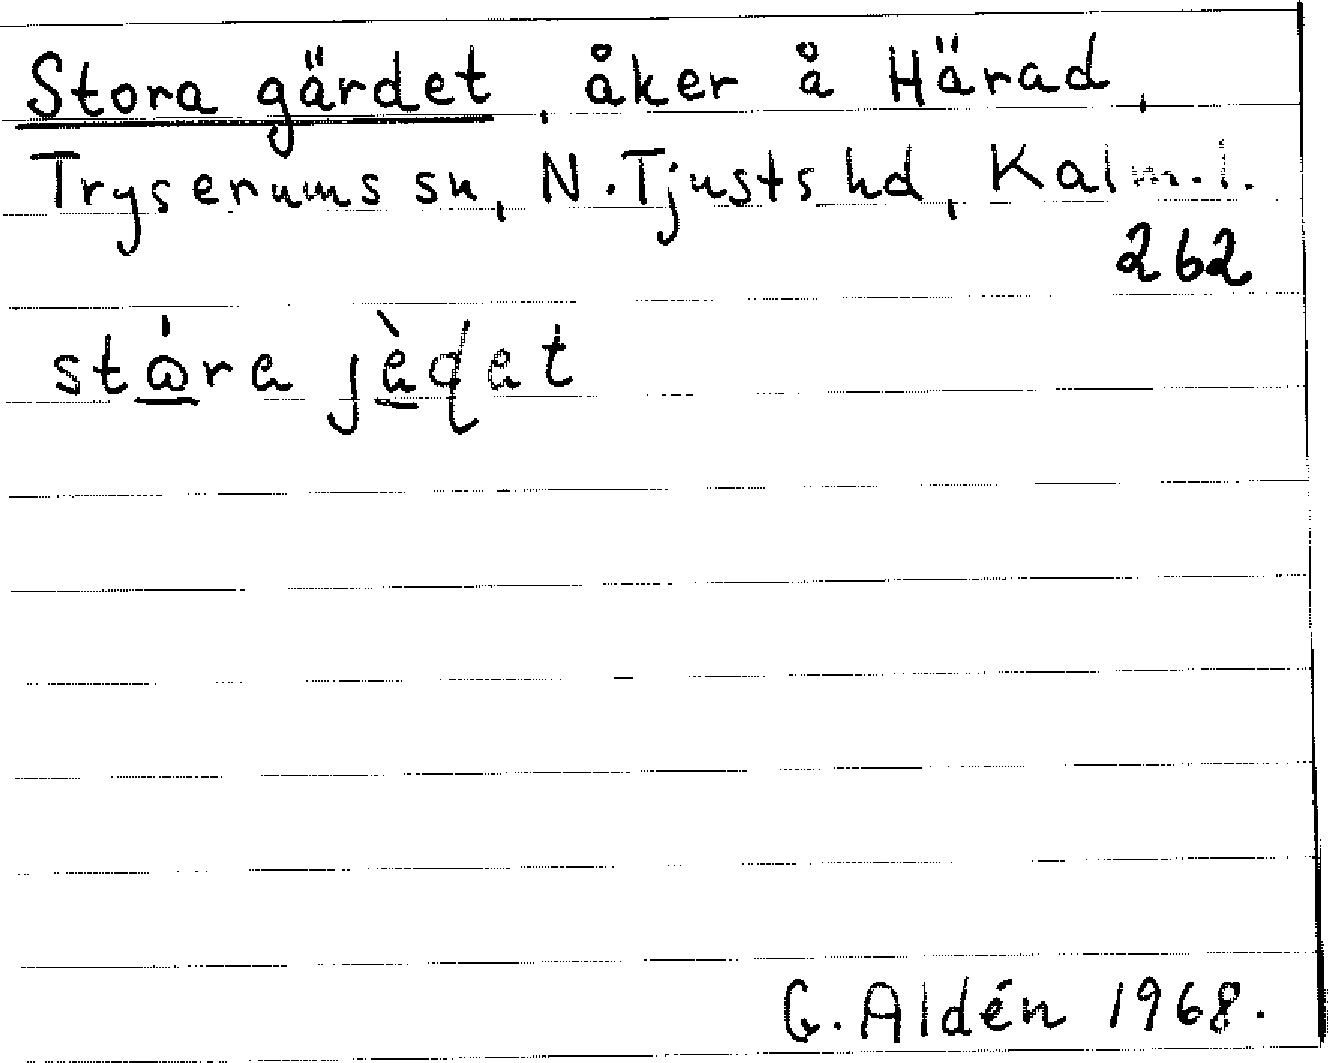 Stora gärdet, åker å Härad,
Tryserums sn, N. Tjusts hd, Kalm. l.
262
G. Aldén 1968.